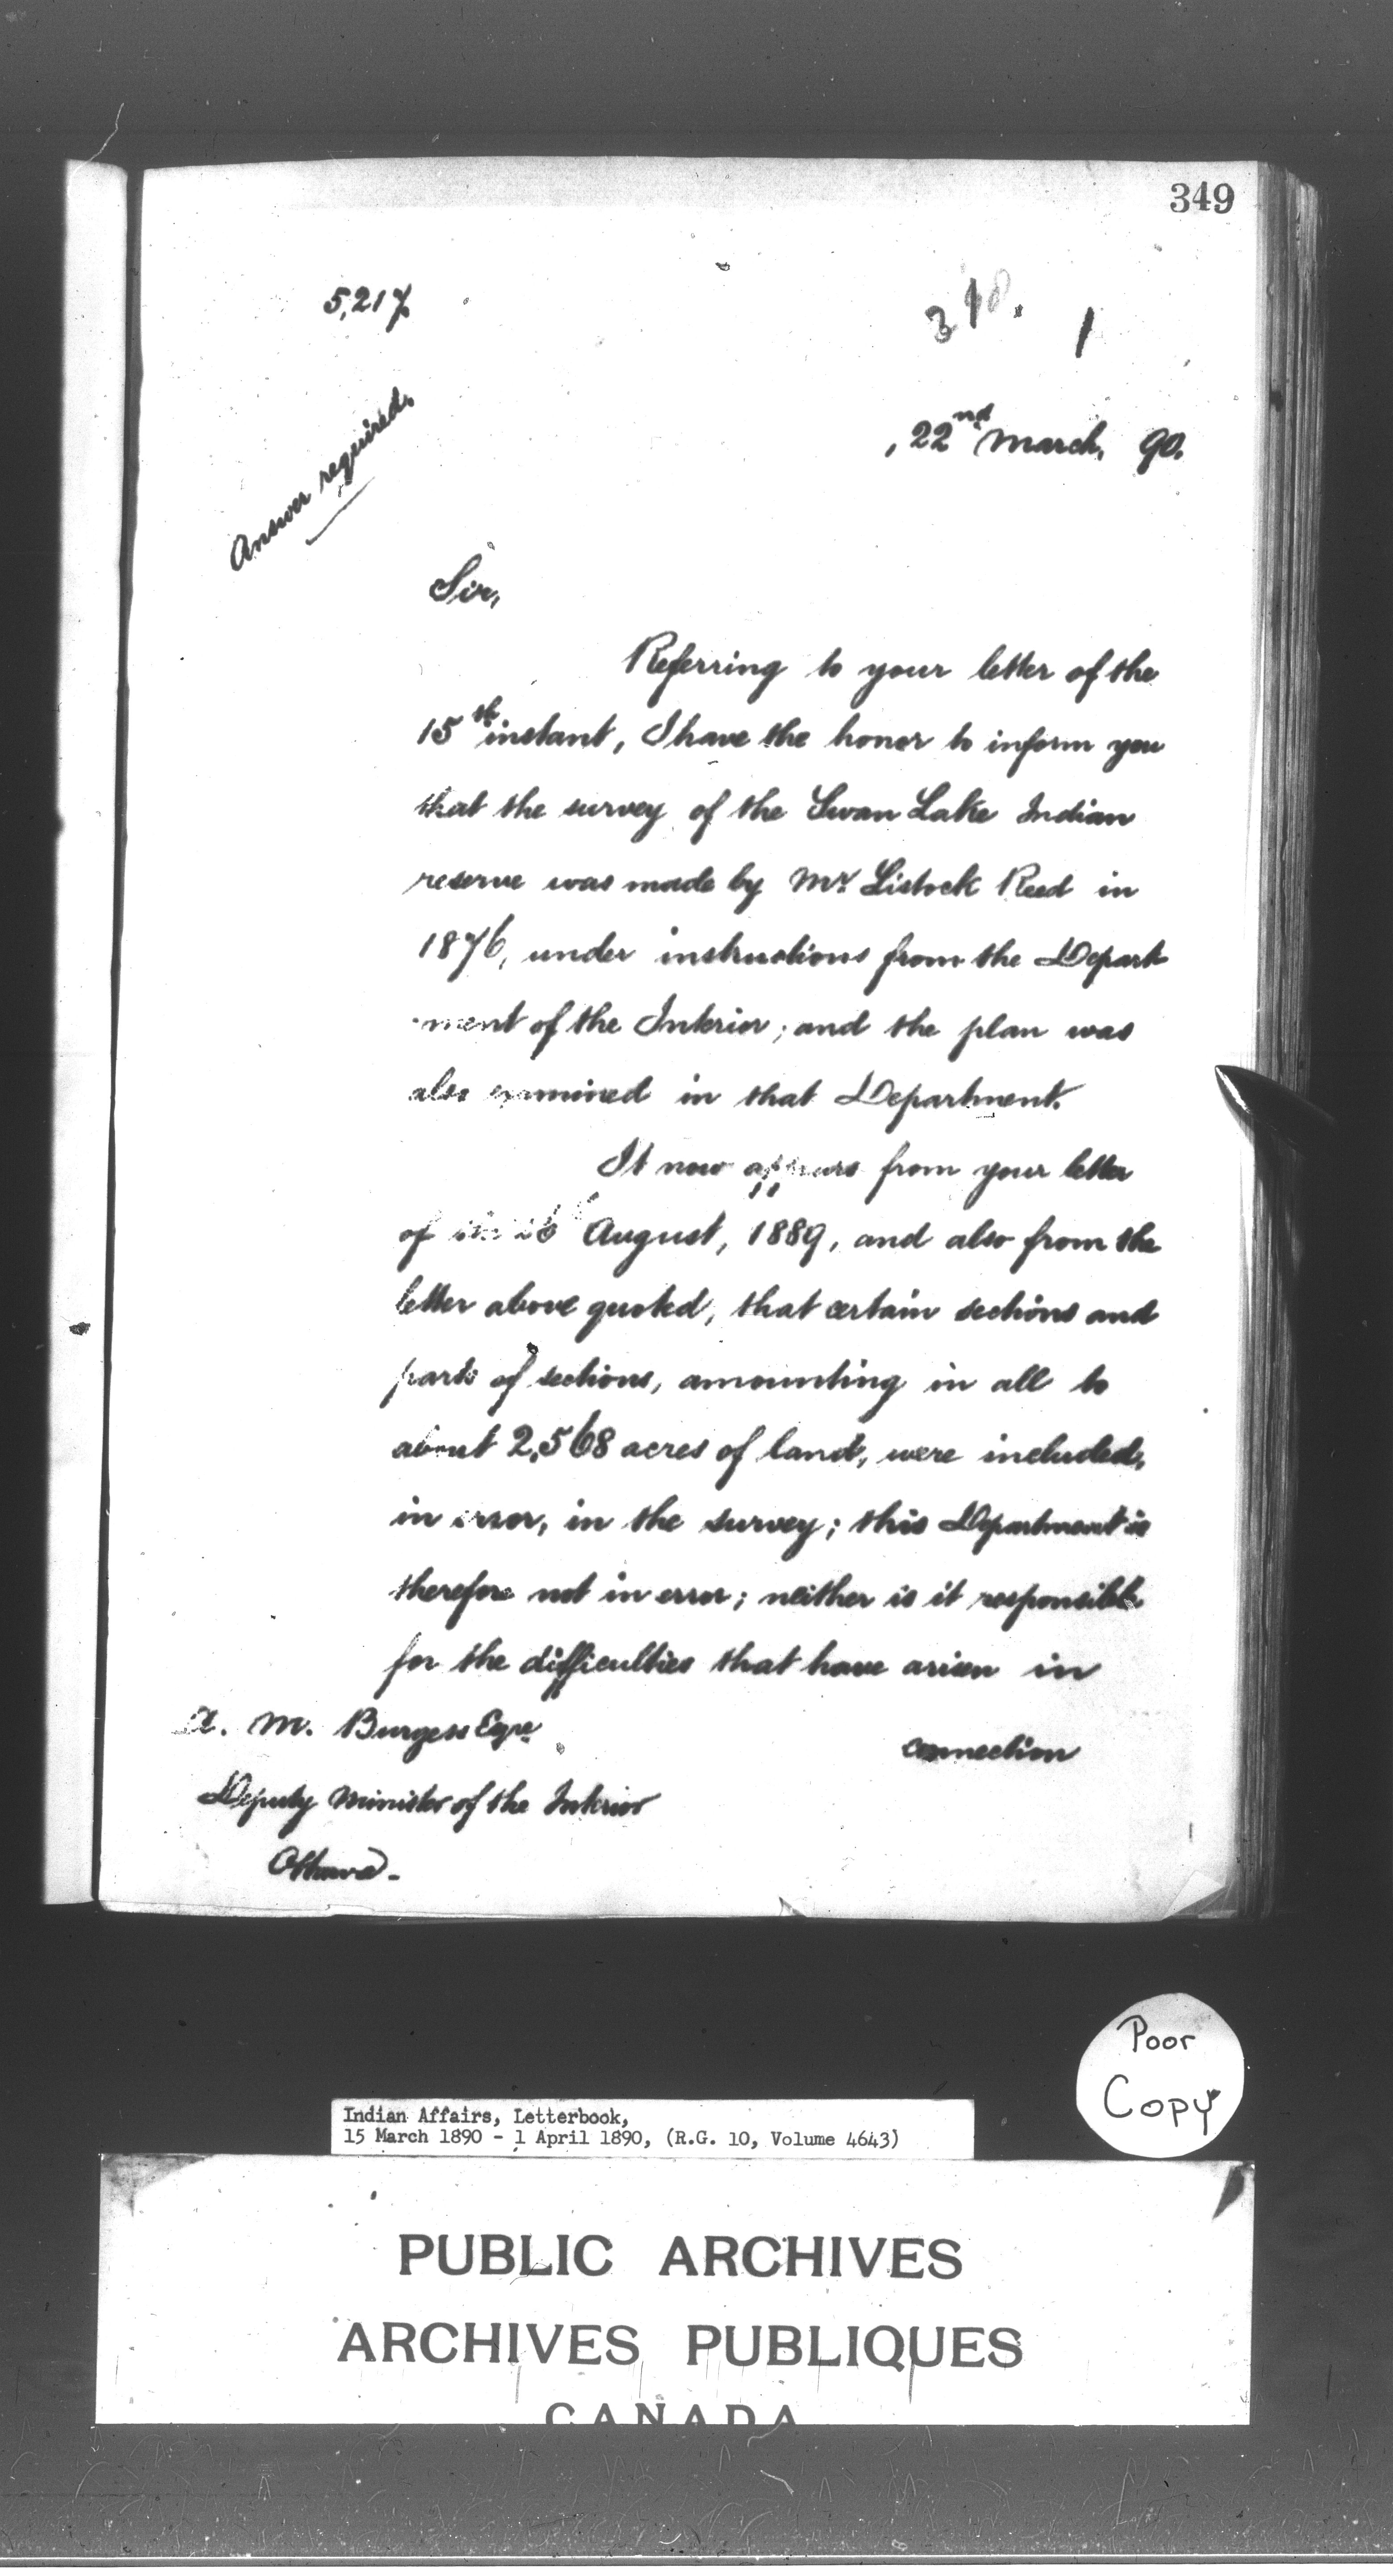 349
5,217
318. 1
Answer required.
22nd March, 90.
Sir,
Referring to your letter of the
15th instant, I have the honor to inform you
that the survey of the Swan Lake Indian
reserve was made by Mr. Listock Reed in
1876, under instructions from the Depart
-ment of the Interior; and the plan was
also examined in that Department.
It now appears from your letter
of the August, 1889, and also from the
letter above quoted, that certain sections and
parts of sections, amounting in all to
about 2,568 acres of land, were included,
in error, in the survey; this Department is
therefore not in error; neither is it responsible
for the difficulties that have arisen in
connection
A. M. Burgess Esqre
Deputy Minister of the Interior
Ottawa -
Poor
Copy
Indian Affairs, Letterbook,
15 March 1890 - 1 April 1890, (R.G. 10, Volume 4643)
PUBLIC ARCHIVES
ARCHIVES PUBLIQUES
CANADA